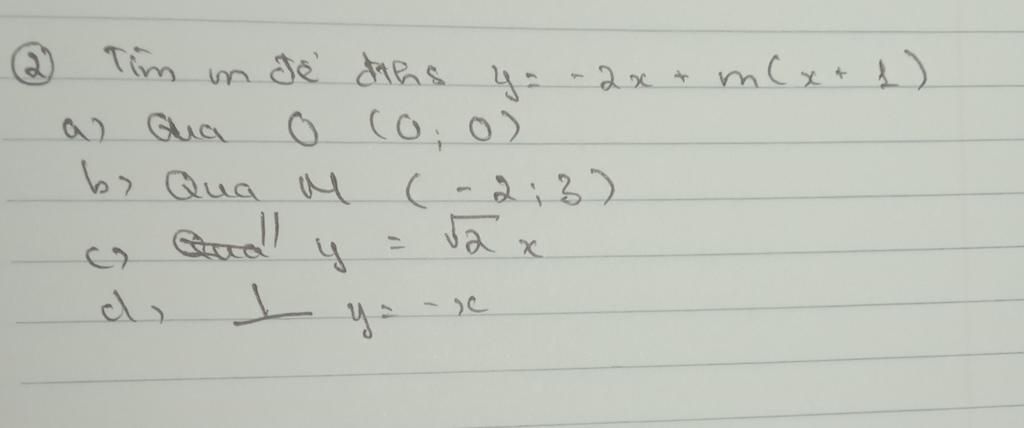 ② Tìm m để đths y = -2x + m(x + 1)
a) Qua O (0; 0)
b) Qua M (-2; 3)
c) // y = √2 x
d) ⊥ y = -x